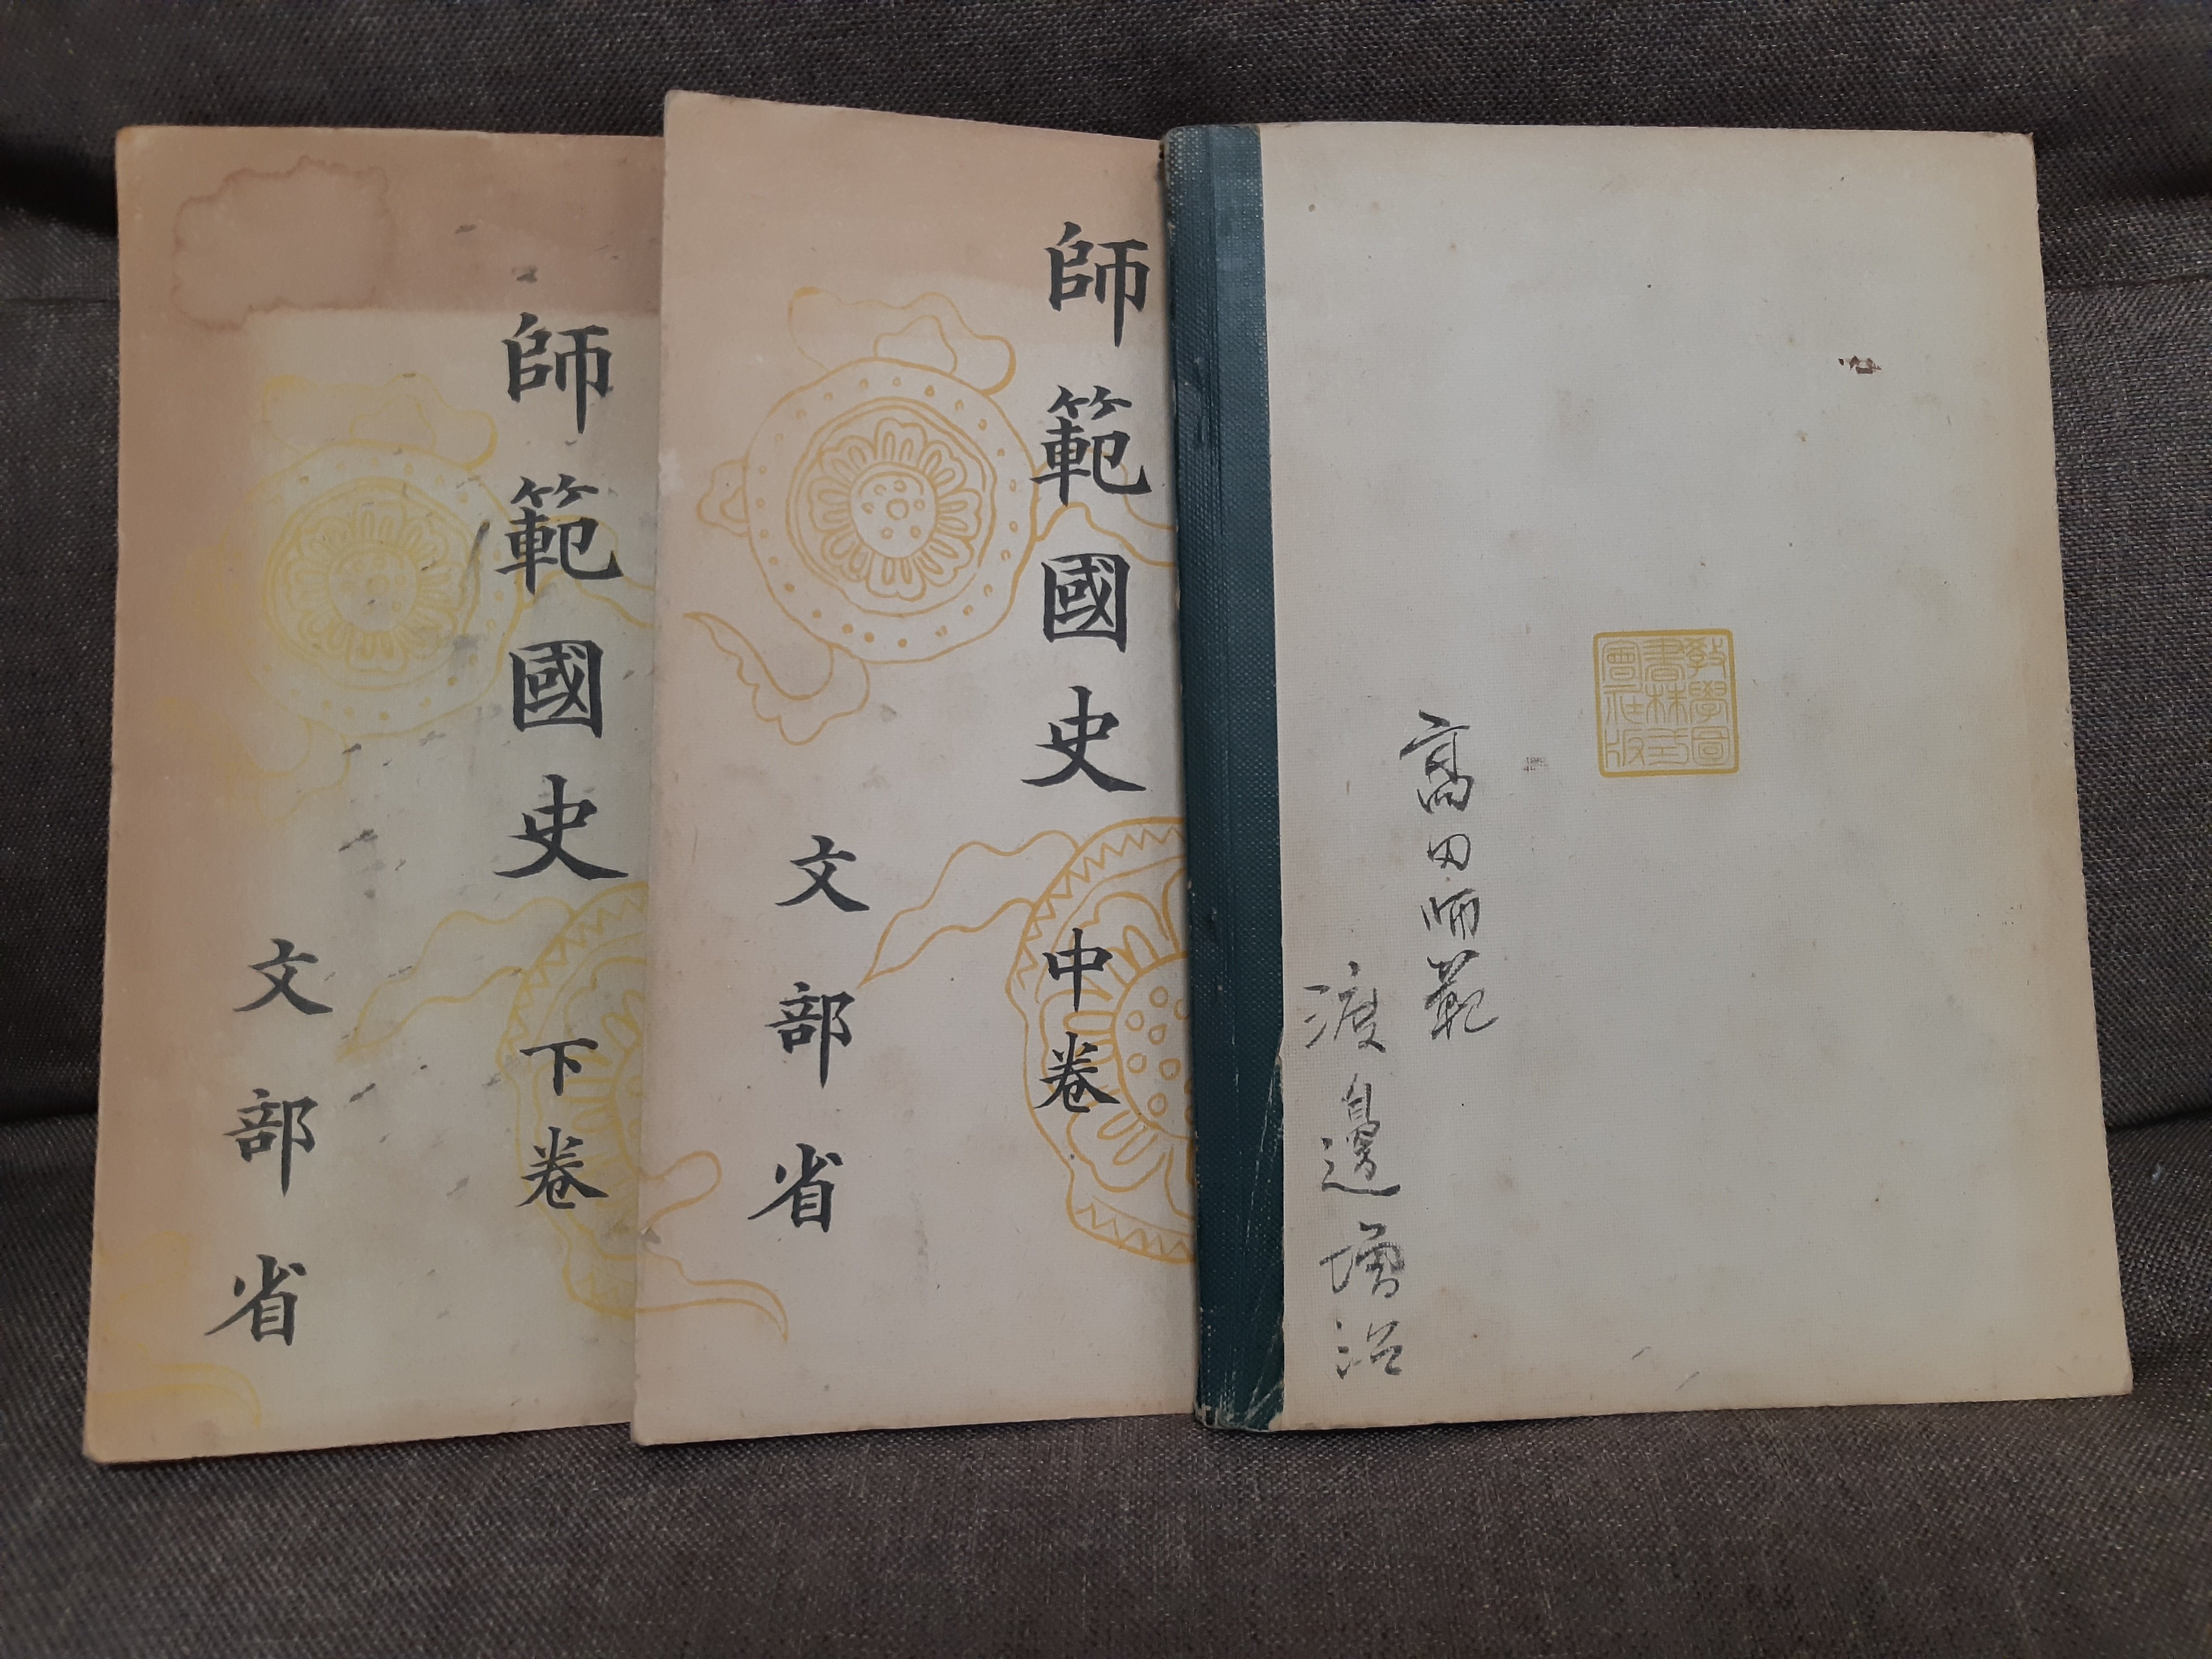 師範國史
下卷
文部省
師範國史
中卷
文部省
敎學圖
書株式
會社版
高田師範
渡邊増治